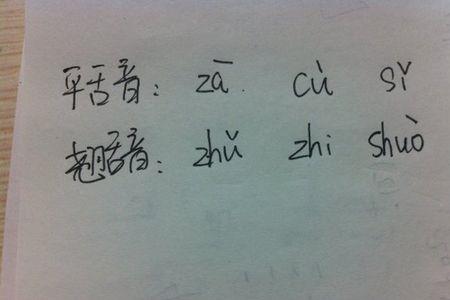 平舌音：zā. cù sǐ
翘舌音：zhǔ zhi shuò